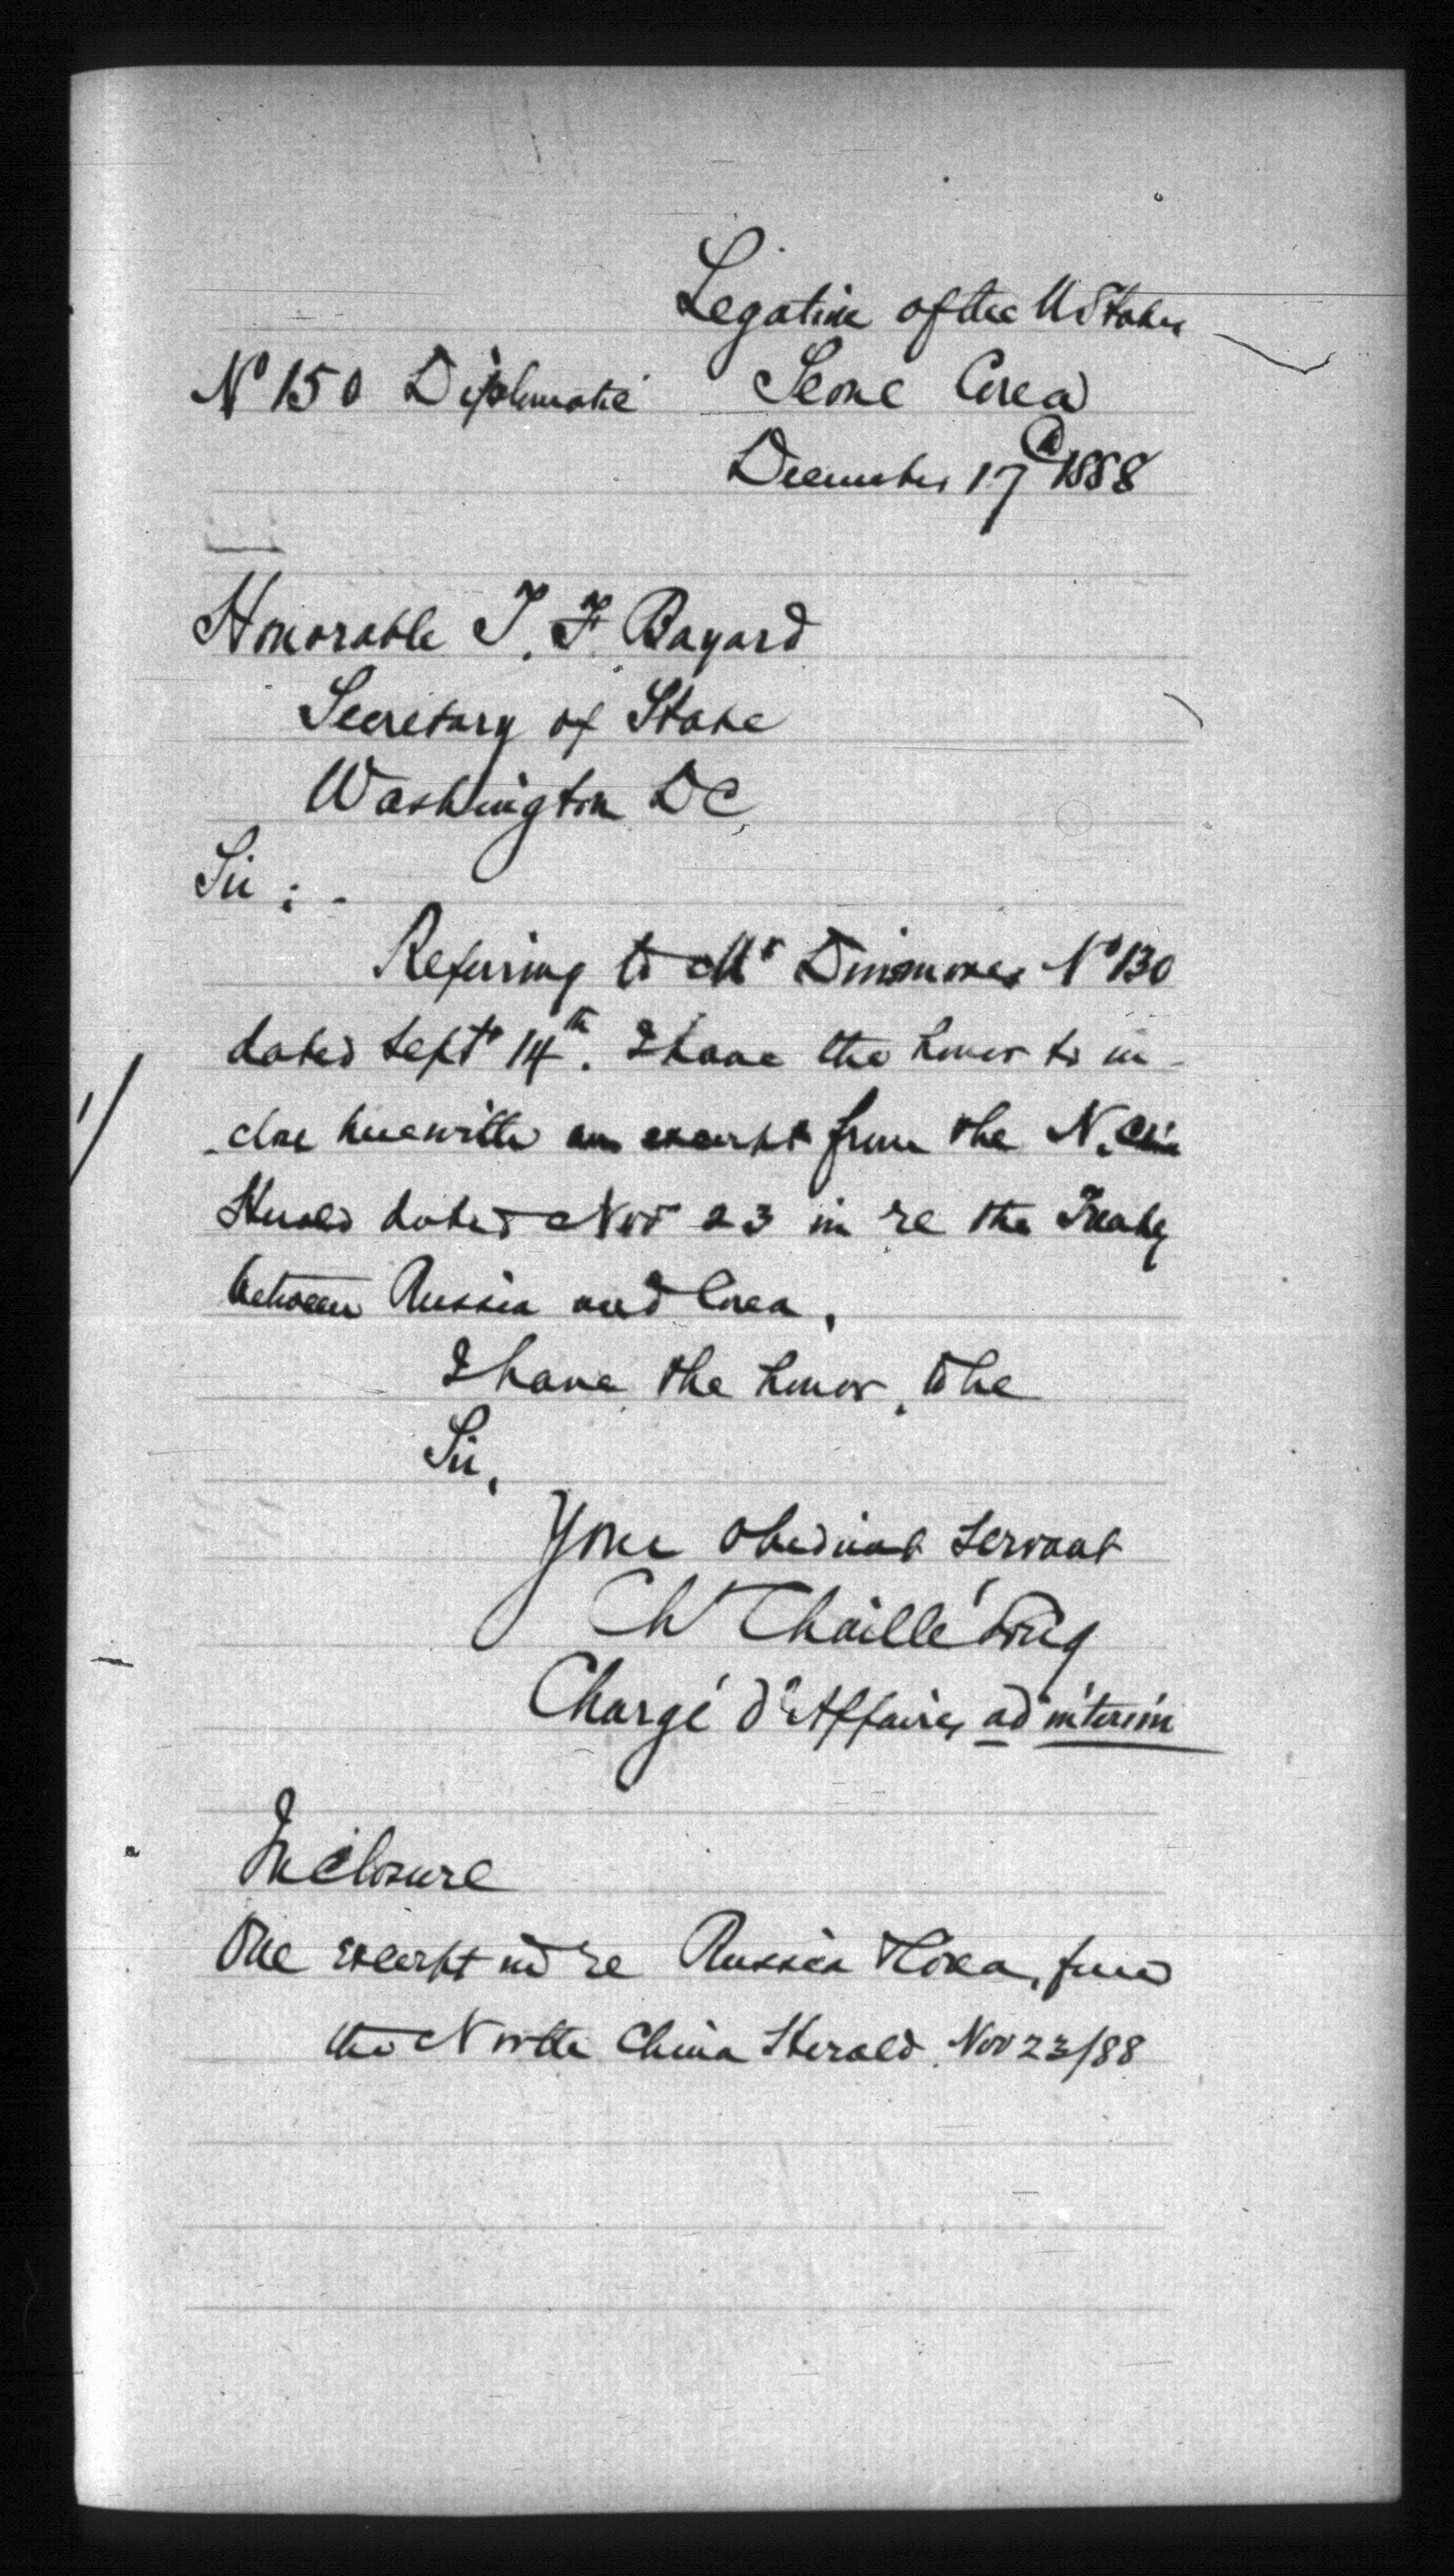 Legation of the U States
No 150 Diplomatic Seoul Corea
December 17th 1888
Honorable T. F. Bayard
Secretary of State
Washington DC.
Sir : -
Referring to Mr Dinsmores No 130
dated Sept 14th. I have the honor to in-
-close herewith an excerpt from the N. China
Herald dated Nov 23 in re the Treaty
between Russia and Corea.
I have the honor, to be
Sir,
Your obedient servant
Ch Chaillé Long
Chargé d'Affaires ad interim
1/
Inclosure
One excerpt in re Russia &Corea, from
the North China Herald. Nov 23/88